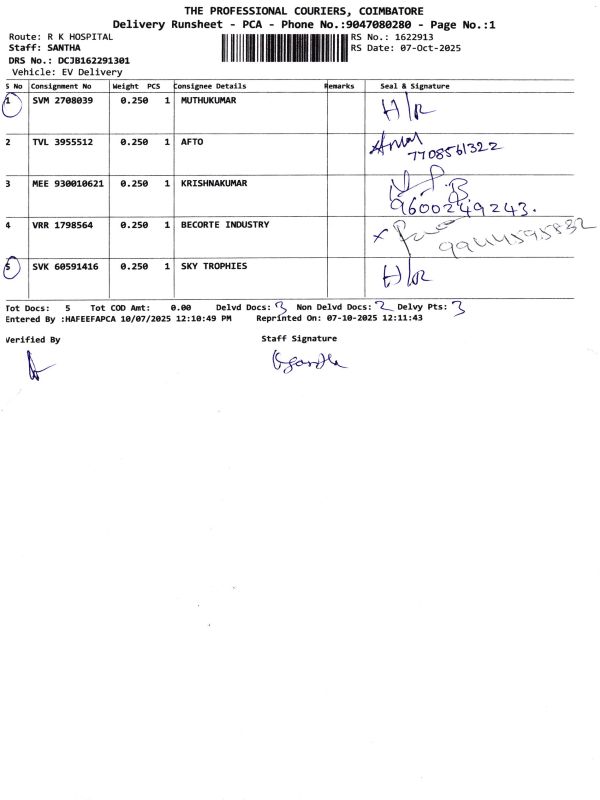 THE PROFESSIONAL COURIERS, COIMBATORE
Delivery Runsheet - PCA - Phone No.:9047080280 - Page No.:1
Route: R K HOSPITAL RS No.: 1622913
Staff: SANTHA RS Date: 07-Oct-2025
DRS No.: DCJB162291301
Vehicle: EV Delivery
S No Consignment No Weight PCS Consignee Details Remarks Seal & Signature
1 SVM 2708039 0.250 1 MUTHUKUMAR H/R
2 TVL 3955512 0.250 1 AFTO
7708561322
3 MEE 930010621 0.250 1 KRISHNAKUMAR
9600249243.
4 VRR 1798564 0.250 1 BECORTE INDUSTRY x 9944595832
5 SVK 60591416 0.250 1 SKY TROPHIES H/R
Tot Docs: 5 Tot COD Amt: 0.00 Delvd Docs: 3 Non Delvd Docs: 2 Delvy Pts: 3
Entered By :HAFEEFAPCA 10/07/2025 12:10:49 PM Reprinted On: 07-10-2025 12:11:43
Verified By Staff Signature